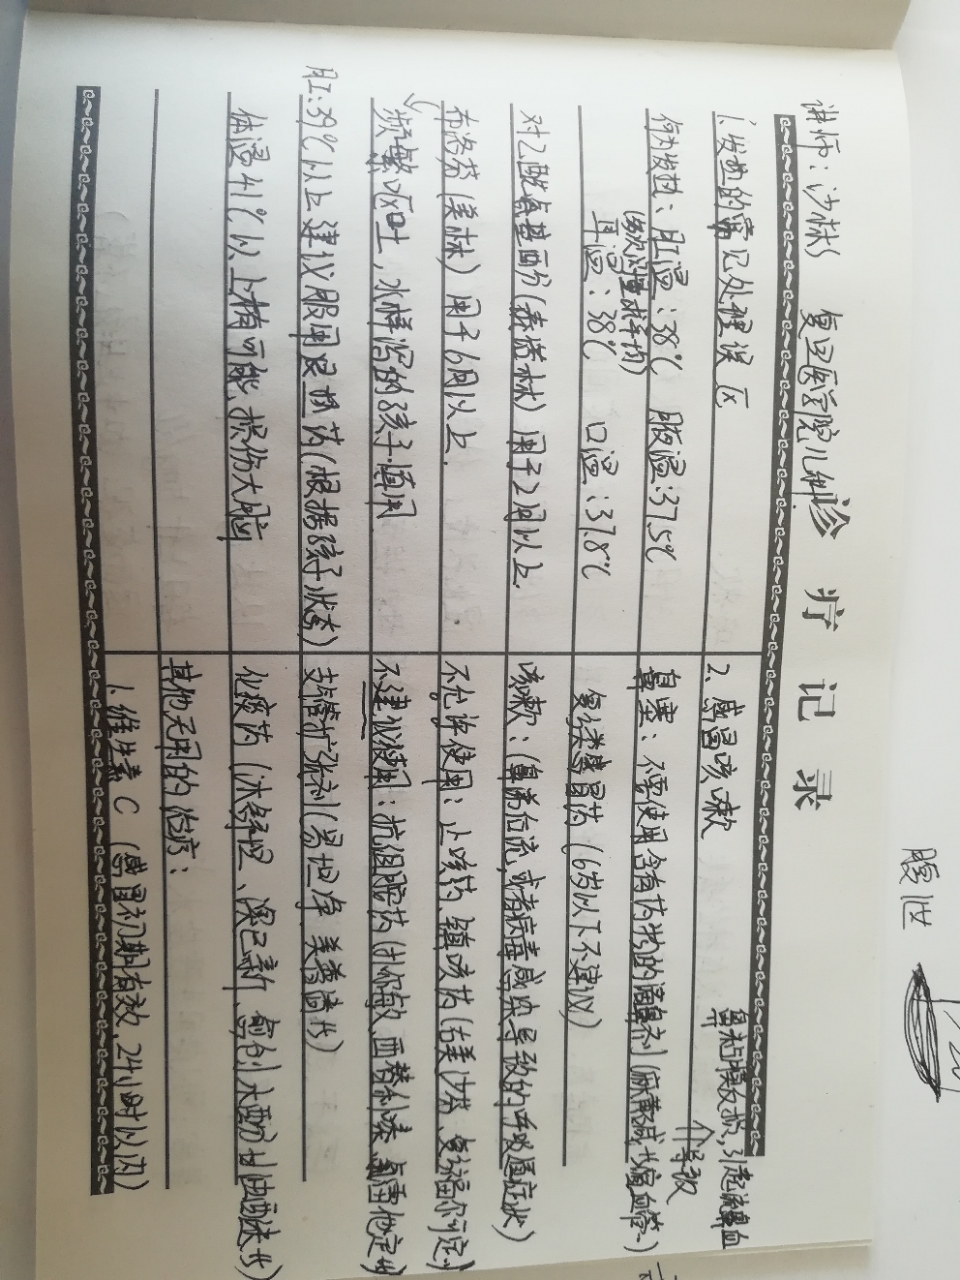 诊疗记录
讲师:沙林 复旦医学院儿科
1、发热的常见处理误区
何为发热:肛温:38℃ 腋温:37.5℃
(多次测量求平均)
耳温:38℃ 口温:37.8℃
对乙酰氨基酚(泰诺林)用于2月以上.
布洛芬(美林)用于6月以上.
频繁呕吐,水样泻的孩子慎用
肛:39℃以上建议服用退热药(根据孩子状态)
体温41℃以上才有可能损伤大脑
2、感冒咳嗽
鼻粘膜充损,引起流鼻血
个导致
鼻塞:不要使用含有药物的滴鼻剂(麻黄碱 收缩血管)
复方类感冒药(6岁以下不建议)
咳嗽:(鼻涕后流,或者病毒感染导致的呼吸道症状)
不允许使用:止咳药 镇咳药(右美沙芬、复福尔可定)
不建议使用:抗组胺药(开瑞敏 西替利嗪 氯雷他定片)
支管扩张剂(易坦净 美普清片)
化痰药(沐舒坦、溴己新、愈创木酚甘油醚片)
其他无用的治疗:
1.维生素C(感冒初期有效,24小时以内)
腹泄